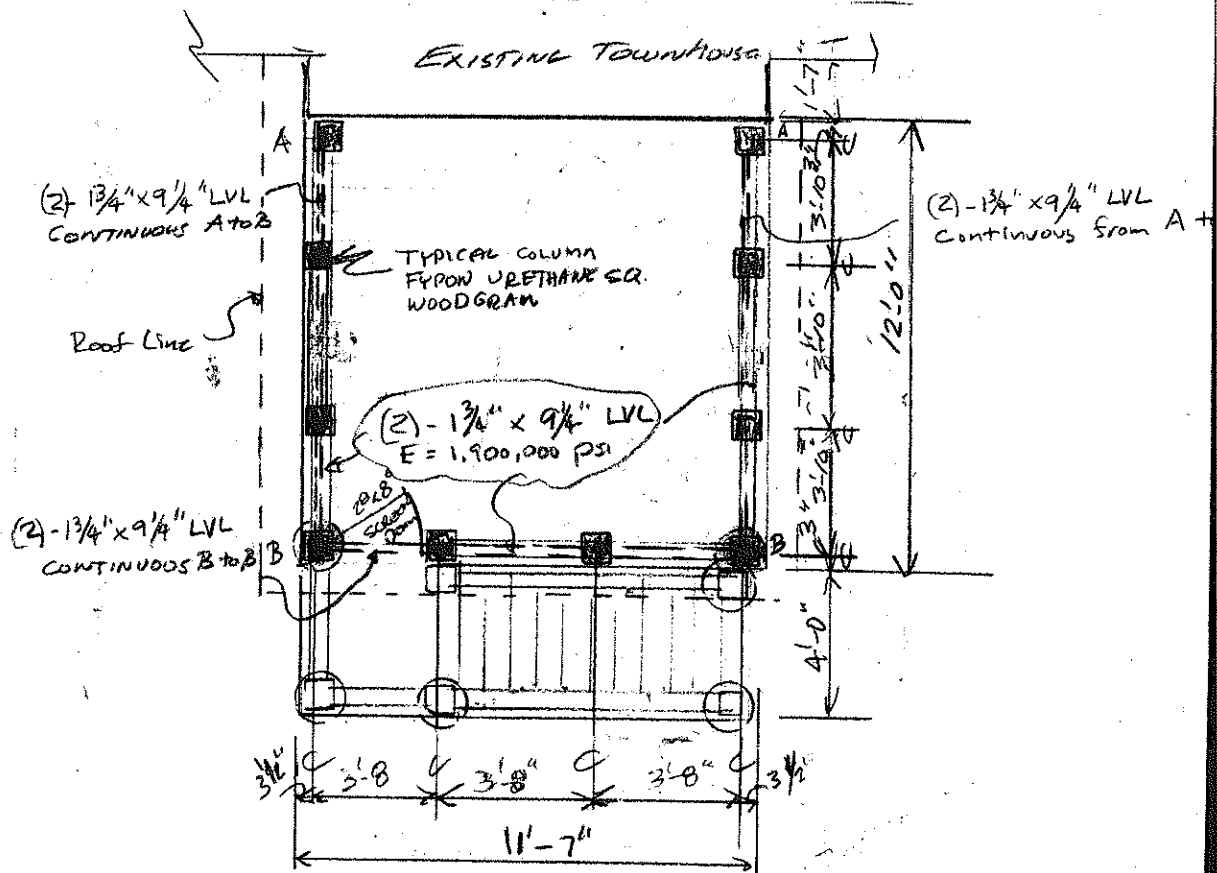 EXISTING TOWNHOUSE
1'-7"
A
A
3"
(2)- 1 3/4" x 9 1/4" LVL
CONTINUOUS A to B
TYPICAL COLUMN
FYPON URETHANE SQ.
WOODGRAIN
3'-10"
(2)-1 3/4" x 9 1/4" LVL
Continuous from A
Roof Line
12'-0"
3'-10"
(2)- 1 3/4" x 9 1/4" LVL
E = 1,900,000 psi
3'-10"
SCREEN
DOOR
(2)-1 3/4" x 9 1/4" LVL
CONTINUOUS B to B
B
B
3"
4'-0"
3 1/2"
3'-8
3'-8"
3'-8"
3 1/2"
11'-7"